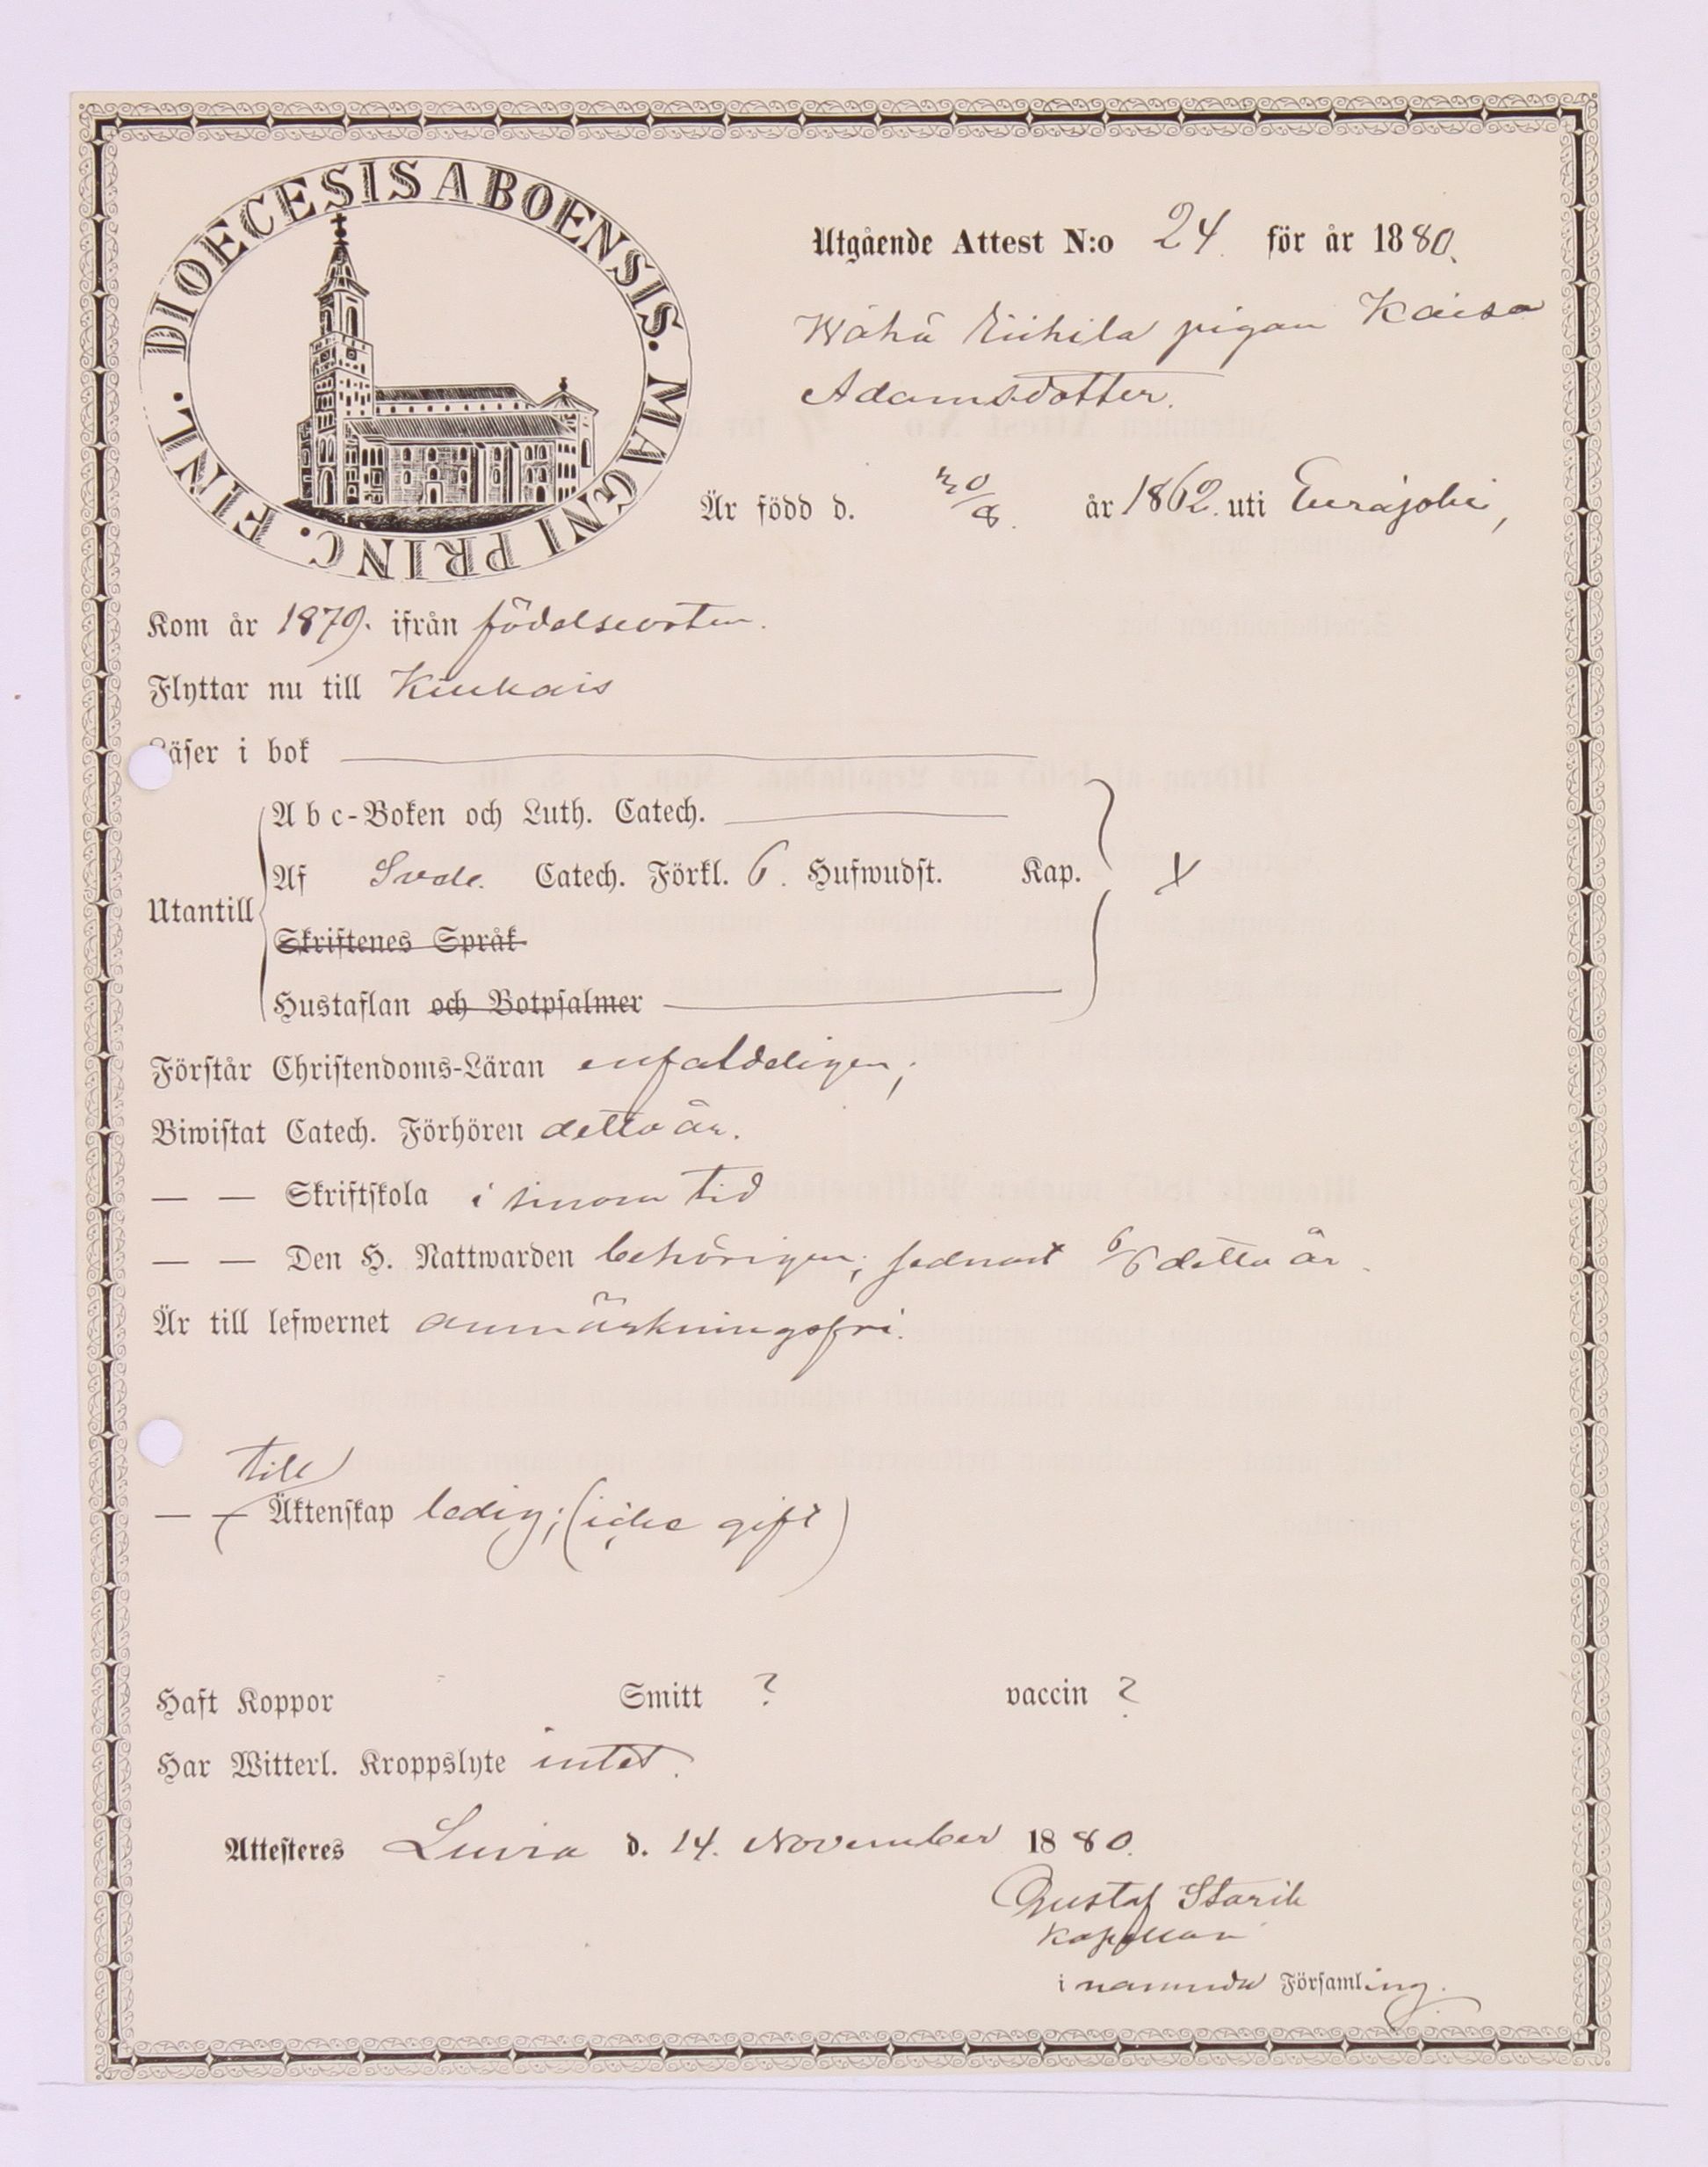 DIOECESIS ABOENSIS. MAGNI PRINC. FINL.
Utgående Attest N:o 24. för år 1880.
Wähä pigan Kaisa
Adamsdotter.
Är född d. 30/8. år 1862. uti Eurajoki,
Kom år 1879. ifrån födelseorten.
Flyttar nu till Kiukais
Läser i bok
Abc-Boken och Luth. Catech.
Af Sveb. Catech. Förkl. 6. Hufwudst. Kap. X
Utantill
Skriftenes Språk
Hustaflan och Botpsalmer
Förstår Christendoms-Läran enfaldeligen;
Biwistat Catech. Förhören detta år.
— — Skriftskola i sinom tid
— — Den H. Nattwarden behörigen; sednast 6/6 detta år.
Är till lefwernet anmärkningsfri.
till
— — Äktenskap ledig; (icke gift)
Haft Koppor Smitt ? vaccin ?
Har Witterl. Kroppslyte intet.
Attesteres Luvia d. 14. November 1880.
Gustaf
Kapellan
i nämnda Församling.